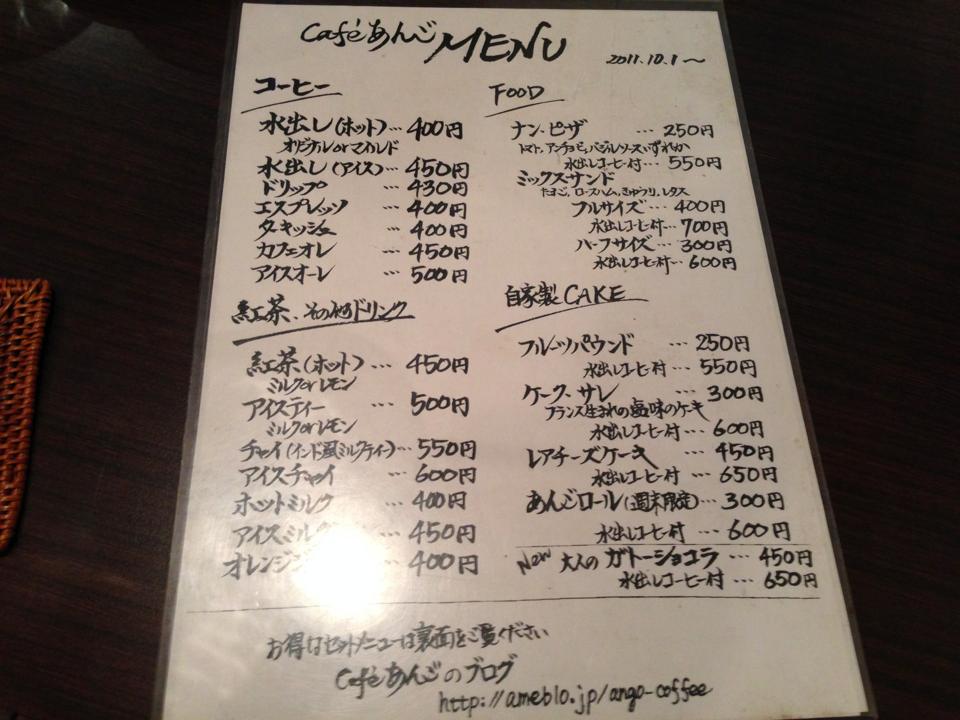 Caféあんご MENU 2011.10.1〜
コーヒー
水出し(ホット)… 400円
オリジナル or マイルド
水出し(アイス)… 450円
ドリップ … 430円
エスプレッソ … 400円
ターキッシュ … 400円
カフェオレ … 450円
アイスオーレ … 500円
紅茶、その他ドリンク
紅茶(ホット)… 450円
ミルク or レモン
アイスティー … 500円
ミルク or レモン
チャイ(インド風ミルクティー)… 550円
アイスチャイ … 600円
ホットミルク … 400円
アイスミルク 450円
オレンジ … 400円
FOOD
ナン・ピザ … 250円
トマト、アンチョビ、バジルソースいずれか
水出しコーヒー付 … 550円
ミックスサンド
たまご、ロースハム、きゅうり、レタス
フルサイズ … 400円
水出しコーヒー付… 700円
ハーフサイズ … 300円
水出しコーヒー付… 600円
自家製CAKE
フルーツパウンド … 250円
水出しコーヒー付 … 550円
ケーク・サレ … 300円
フランス生まれの塩味のケーキ
水出しコーヒー付 … 600円
レアチーズケーキ … 450円
水出しコーヒー付 … 650円
あんごロール(週末限定)… 300円
水出しコーヒー付 … 600円
New 大人の ガトーショコラ … 450円
水出しコーヒー付 … 650円
お得なセットメニューは裏面をご覧ください
Caféあんごのブログ
http://ameblo.jp/ango-coffee